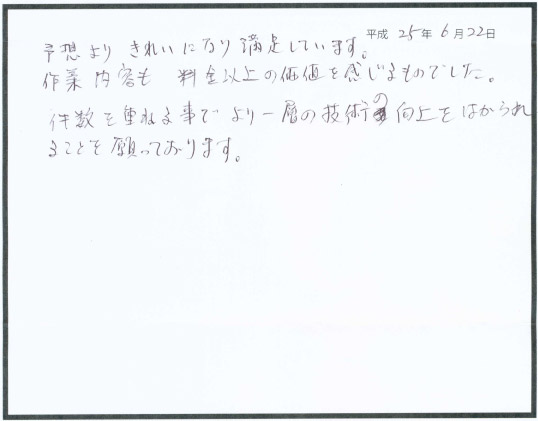 平成 25年 6月22日
予想より きれいになり 満足しています。
作業内容も 料金以上の価値を感じるものでした。
件数を重ねる事で より一層の技術の向上をはかられ
ることを願っております。